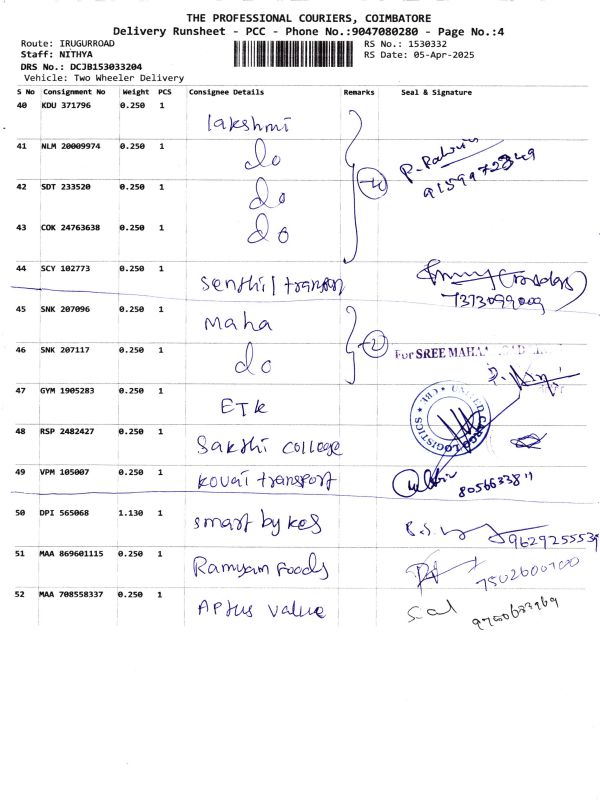 THE PROFESSIONAL COURIERS, COIMBATORE
Delivery Runsheet - PCC - Phone No.:9047080280 - Page No.:4
Route: IRUGURROAD RS No.: 1530332
Staff: NITHYA RS Date: 05-Apr-2025
DRS No.: DCJB153033204
Vehicle: Two Wheeler Delivery
S No Consignment No Weight PCS Consignee Details Remarks Seal & Signature
40 KDU 371796 0.250 1 lakshmi
41 NLM 20009974 0.250 1 do
42 SDT 233520 0.250 1 do
43 COK 24763638 0.250 1 do
44 SCY 102773 0.250 1 Senthil
45 SNK 207096 0.250 1 maha
46 SNK 207117 0.250 1 do For SREE MAHA
47 GYM 1905283 0.250 1 ETK
48 RSP 2482427 0.250 1 Sakthi college
49 VPM 105007 0.250 1 kovai transport
50 DPI 565068 1.130 1 smart bykes
51 MAA 869601115 0.250 1 Ramyam Foods
52 MAA 708558337 0.250 1 Aptus value